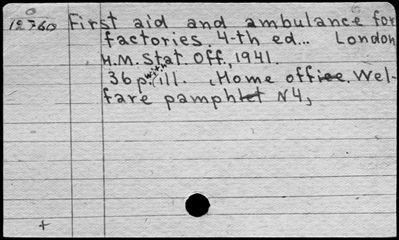 12760 First aid and ambulance for
factories. 4-th ed... London
H.M. Stat. Off., 1941.
36 p. with ill. (Home office. Wel-
fare pamphlet N4)
+